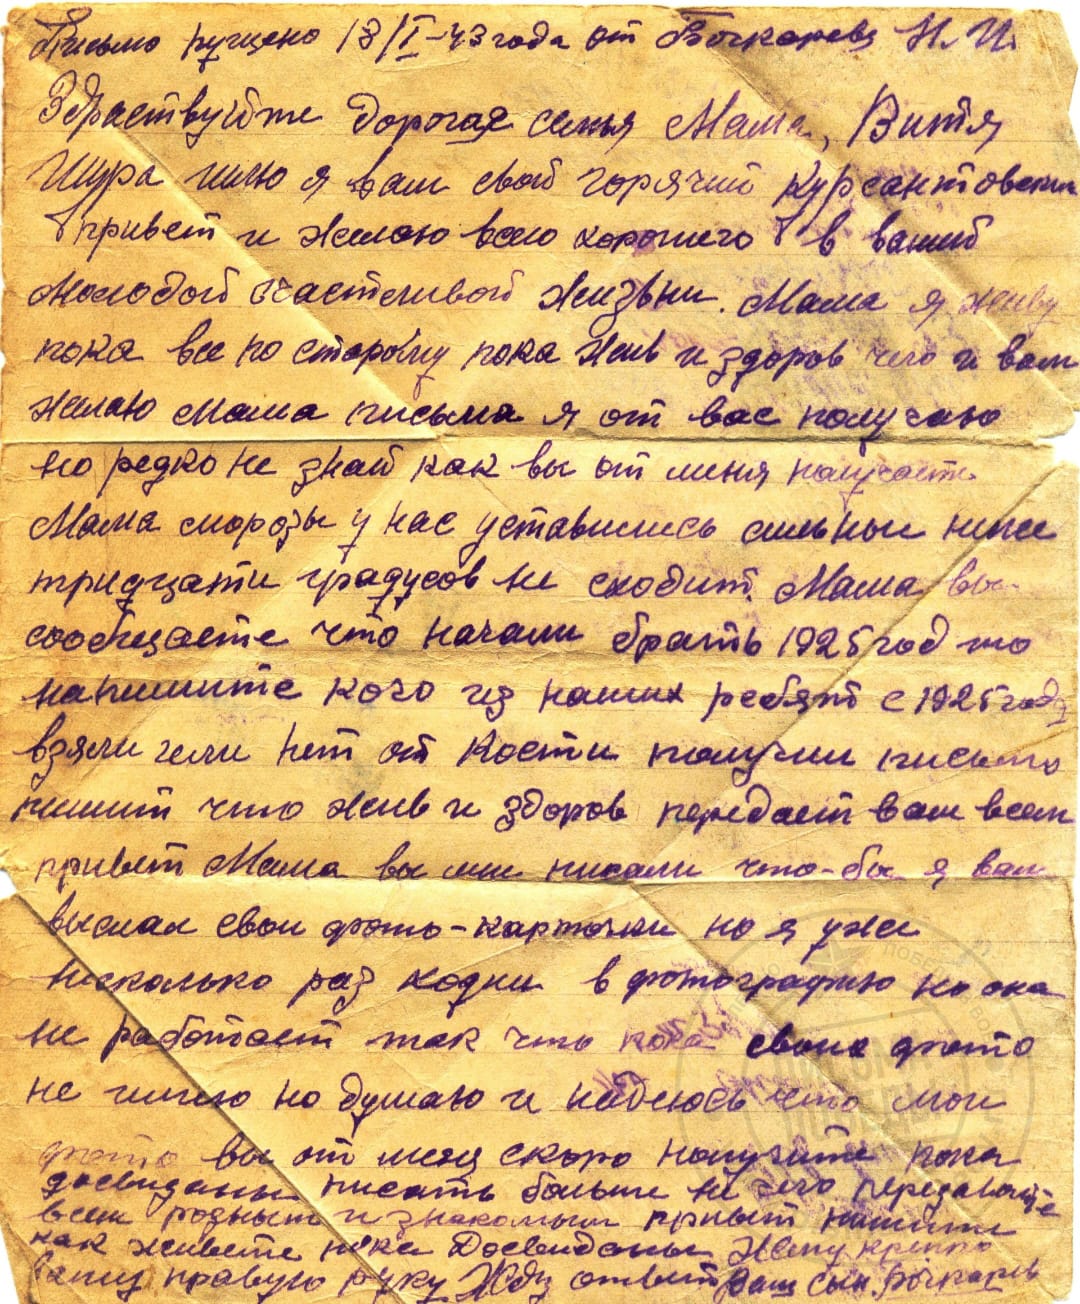 Письмо пущено 18/I-43 года от Бочкарева Н.И.
Здраствуйте дорогая семья Мама, Витя
Шура шлю я вам свой горячий курсантовский
привет и желаю всего хорошего в вашей
молодой счастливой жизьни. Мама я живу
пока все по старому пока жив и здоров чего и вам
желаю Мама письма я от вас получаю
но редко не знай как вы от меня получаете.
Мама морозы у нас уставились сильные ниже
тридцати градусов не сходит. Мама вы
сообщаете что начали брать 1925 год то
напишите кого из наших ребят с 1925 года
взяли или нет от Кости получил письмо
пишит что жив и здоров передает вам всем
привет Мама вы мне писали что-бы я вам
выслал свои фото-карточки но я уже
несколько раз ходил в фотографию но она
не работает так что пока своих фото
не имею но думаю и надеюсь что мои
фото вы от меня скоро получите пока
досвиданье писать больше не чего передавайте
всем родным и знакомым привет пишите
как живете пока Досвиданье Жму крепко
Вашу правую руку Жду ответ Ваш сын. Бочкарев